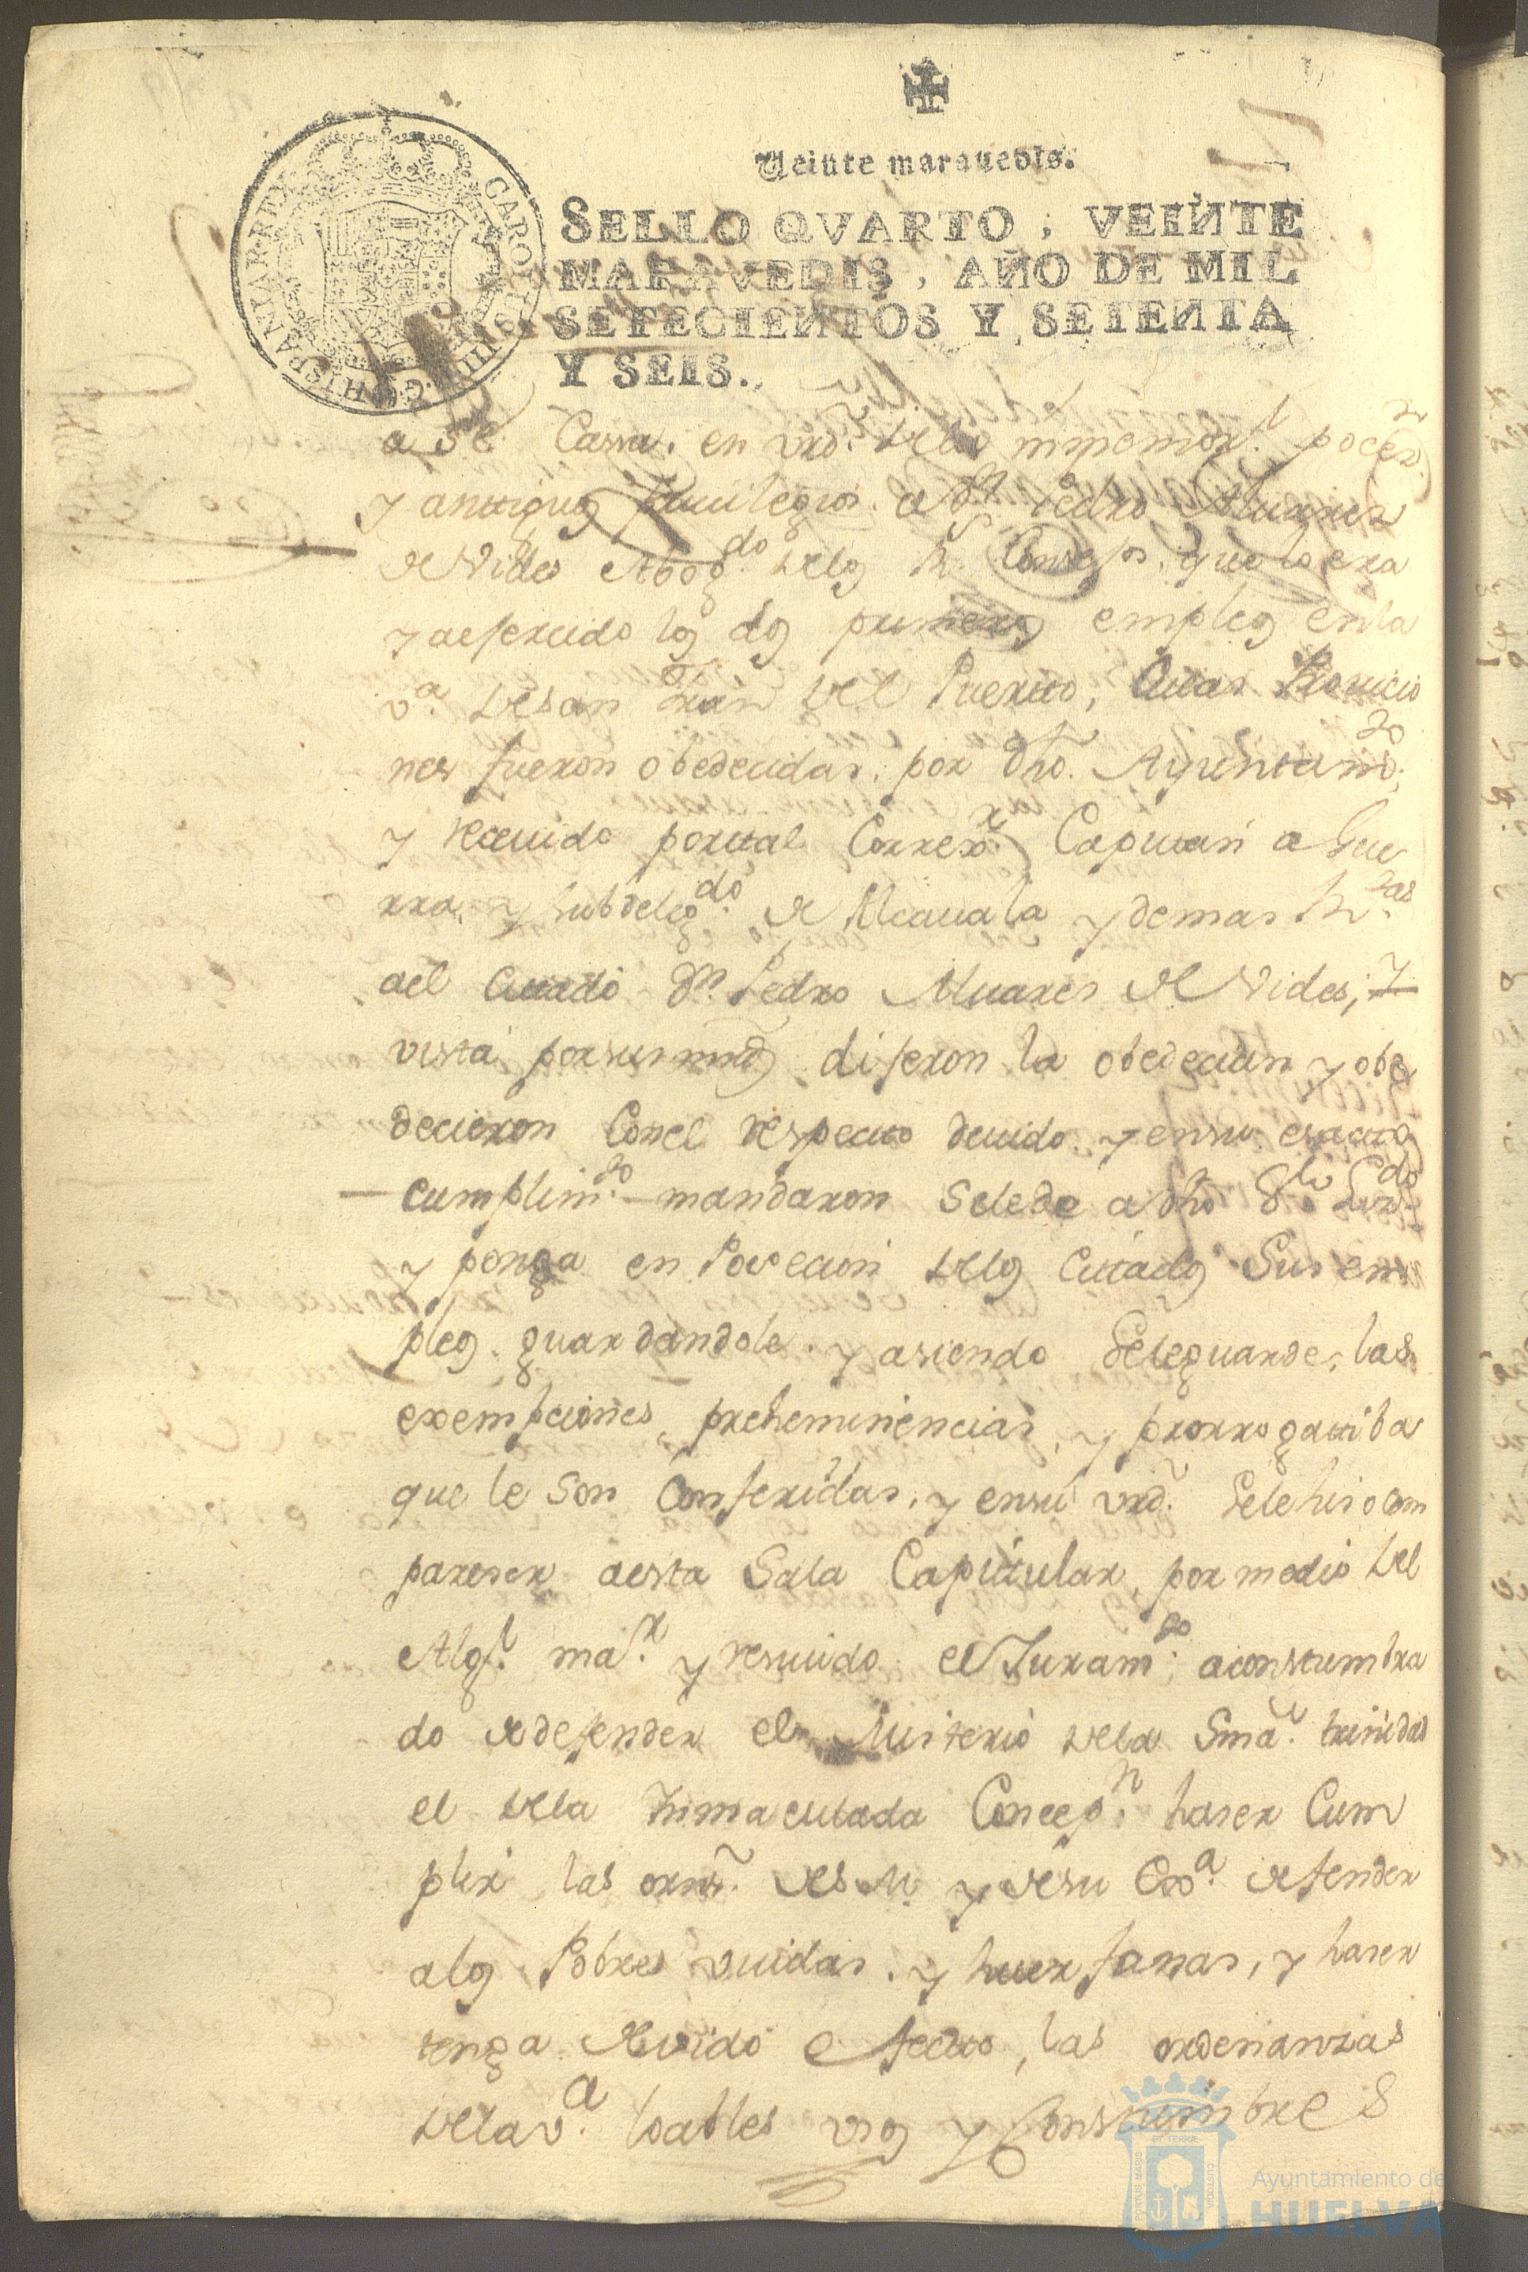 Veinte maravedis.
SELLO QVARTO, VEINTE
MARAVEDIS, AÑO DE MIL
SETECIENTOS Y SETENTA
Y SEIS.
CAROLUS III D. G. HISPANIAR REX
a se Cassa, en vrd. dela inmemorl. poceon
y antiguos privilegios a Dn. Pedro Alvares
de Vides Abogdo. delos Rs. Consejos, que lo era
y a ejercido los dos primeros empleos en la
va. de San Juan del Puerto, Cuias Provicio
nes fueron obedecidas, por dho. Ayuntamto.
y recivido por tal Correxr. Capitan a Gue
rra, y subdelegdo. de Alcavala y demas Rtas
ael citado Dn. Pedro Alvares de Vides, y
vista por sus mrds dijeron la obedecian y obe
decieron Con el respecto devido y en su esacto
cumplimto. mandaron se le de a dho Sr. Lizdo
y ponga en Posecion delos citados Sus em
pleos guardandole y asiendo se le guarde, las
exempciones, preheminencias, y prorrogatiba
que le son Conferidas, y en su vrd. se le hiso com
pareser a esta Sala Capitular, por medio del
Algl. mar. y resivido el Juramto. aconstumbra
do de defender el Misterio dela Sma. trinidad
el dela Inmaculada Concepn. haser Cum
plir las orns. de S. M. y de su Exa. defender
alos Pobres viudas y huerfanas, y haser
tenga devido efecto, las ordenanzas
dela va. loables usos y Constumbres
Ayuntamiento de
HUELVA